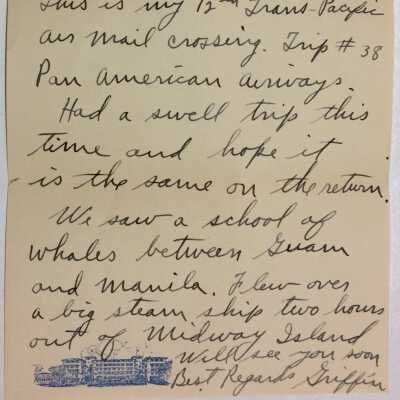 This is my 12th Trans-Pacific
air mail crossing. Trip # 38
Pan American Airways.
Had a swell trip this
time and hope it
is the same on the return.
We saw a school of
whales between Guam
and Manila. Flew over
a big steam ship two hours
out of Midway Island
Will see you soon
Best Regards Griffin